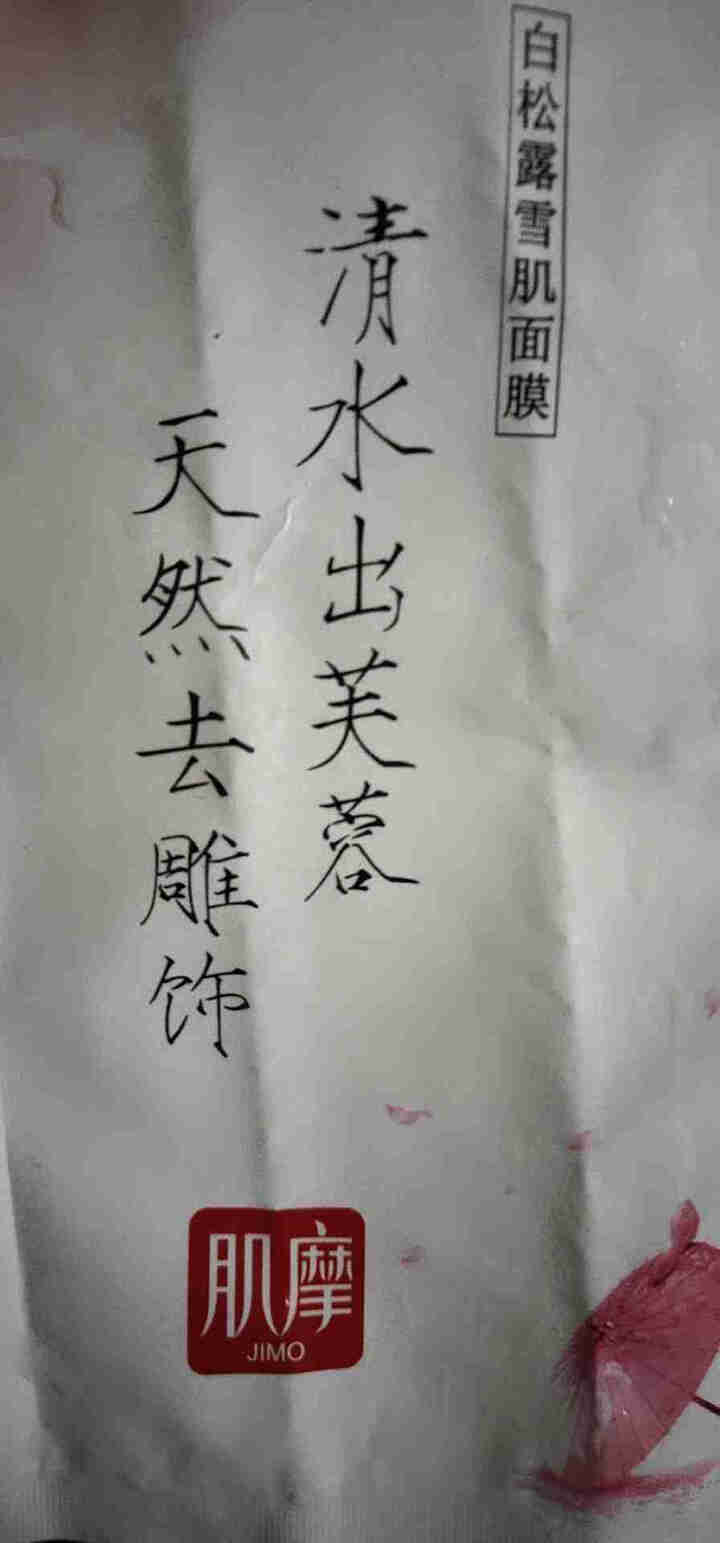 白松露雪肌面膜
清水出芙蓉
天然去雕饰
肌摩
JIMO